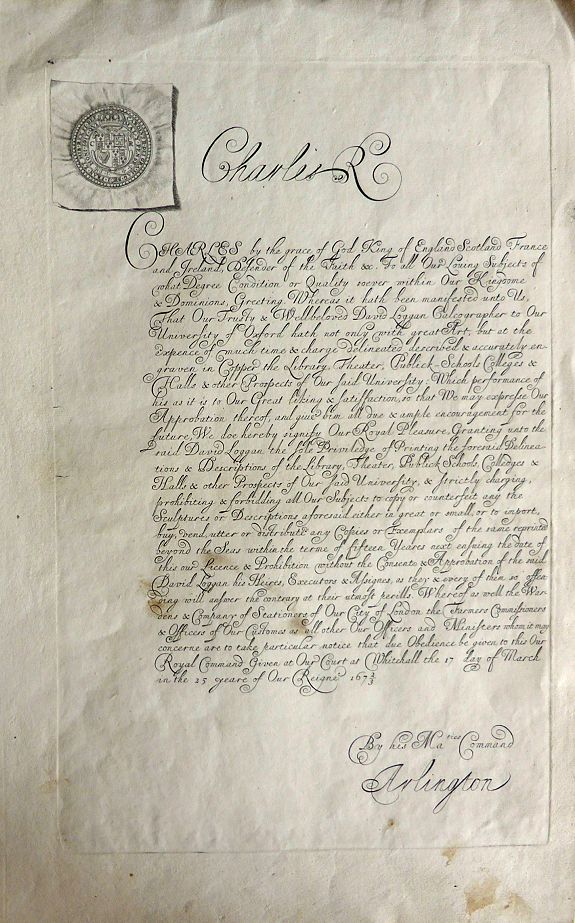 Charles R
CHARLES by the grace of God King of England Scotland France
and Ireland, Defender of the Faith &c. To all Our Loving Subjects of
what Degree Condition or Quality soever within Our Kingdome
& Dominions, Greeting. Whereas it hath been manifested unto Us,
That Our Trusty & Wellbeloved David Loggan Calcographer to Our
University of Oxford hath not only with great Art, but at the
expence of much time & charge delineated described & accurately en-
graven in Copper the Library, Theater, Publick-Schools Colleges &
Halls & other Prospects of Our said University. Which performance of
his as it is to Our Great liking & satisfaction, so that We may expresse Our
Approbation thereof, and give him all due & ample encouragement for the
future, We doe hereby signify Our Royal Pleasure, Granting unto the
said David Loggan the sole Priviledge of Printing the foresaid Delinea-
tions & Descriptions of the Library, Theater, Publick Schools, Colledges &
Halls & other Prospects of Our said University, & strictly charging,
prohibiting & forbidding all Our Subjects to copy or counterfeit any the
Sculptures or Descriptions aforesaid either in great or small, or to import,
buy, vend, utter or distribute any Copies or Exemplars of the same reprinted
beyond the Seas within the terme of fifteen Yeares next ensuing the date of
this our Licence & Prohibition without the Consent & Approbation of the said
David Loggan his Heires, Executors & Assignes, as they & every of them so offen-
ding will answer the contrary at their utmost perills. Whereof as well the War-
dens & Company of Stationers of Our City of London the Farmers Commissioners
& Officers of Our Customes as all other Our Officers and Ministers whom it may
concerne are to take particular notice that due Obedience be given to this Our
Royal Command Given at Our Court at Whitehall the 17 day of March
in the 25 yeare of Our Reigne 167⅔
By his Maties Command
Arlington